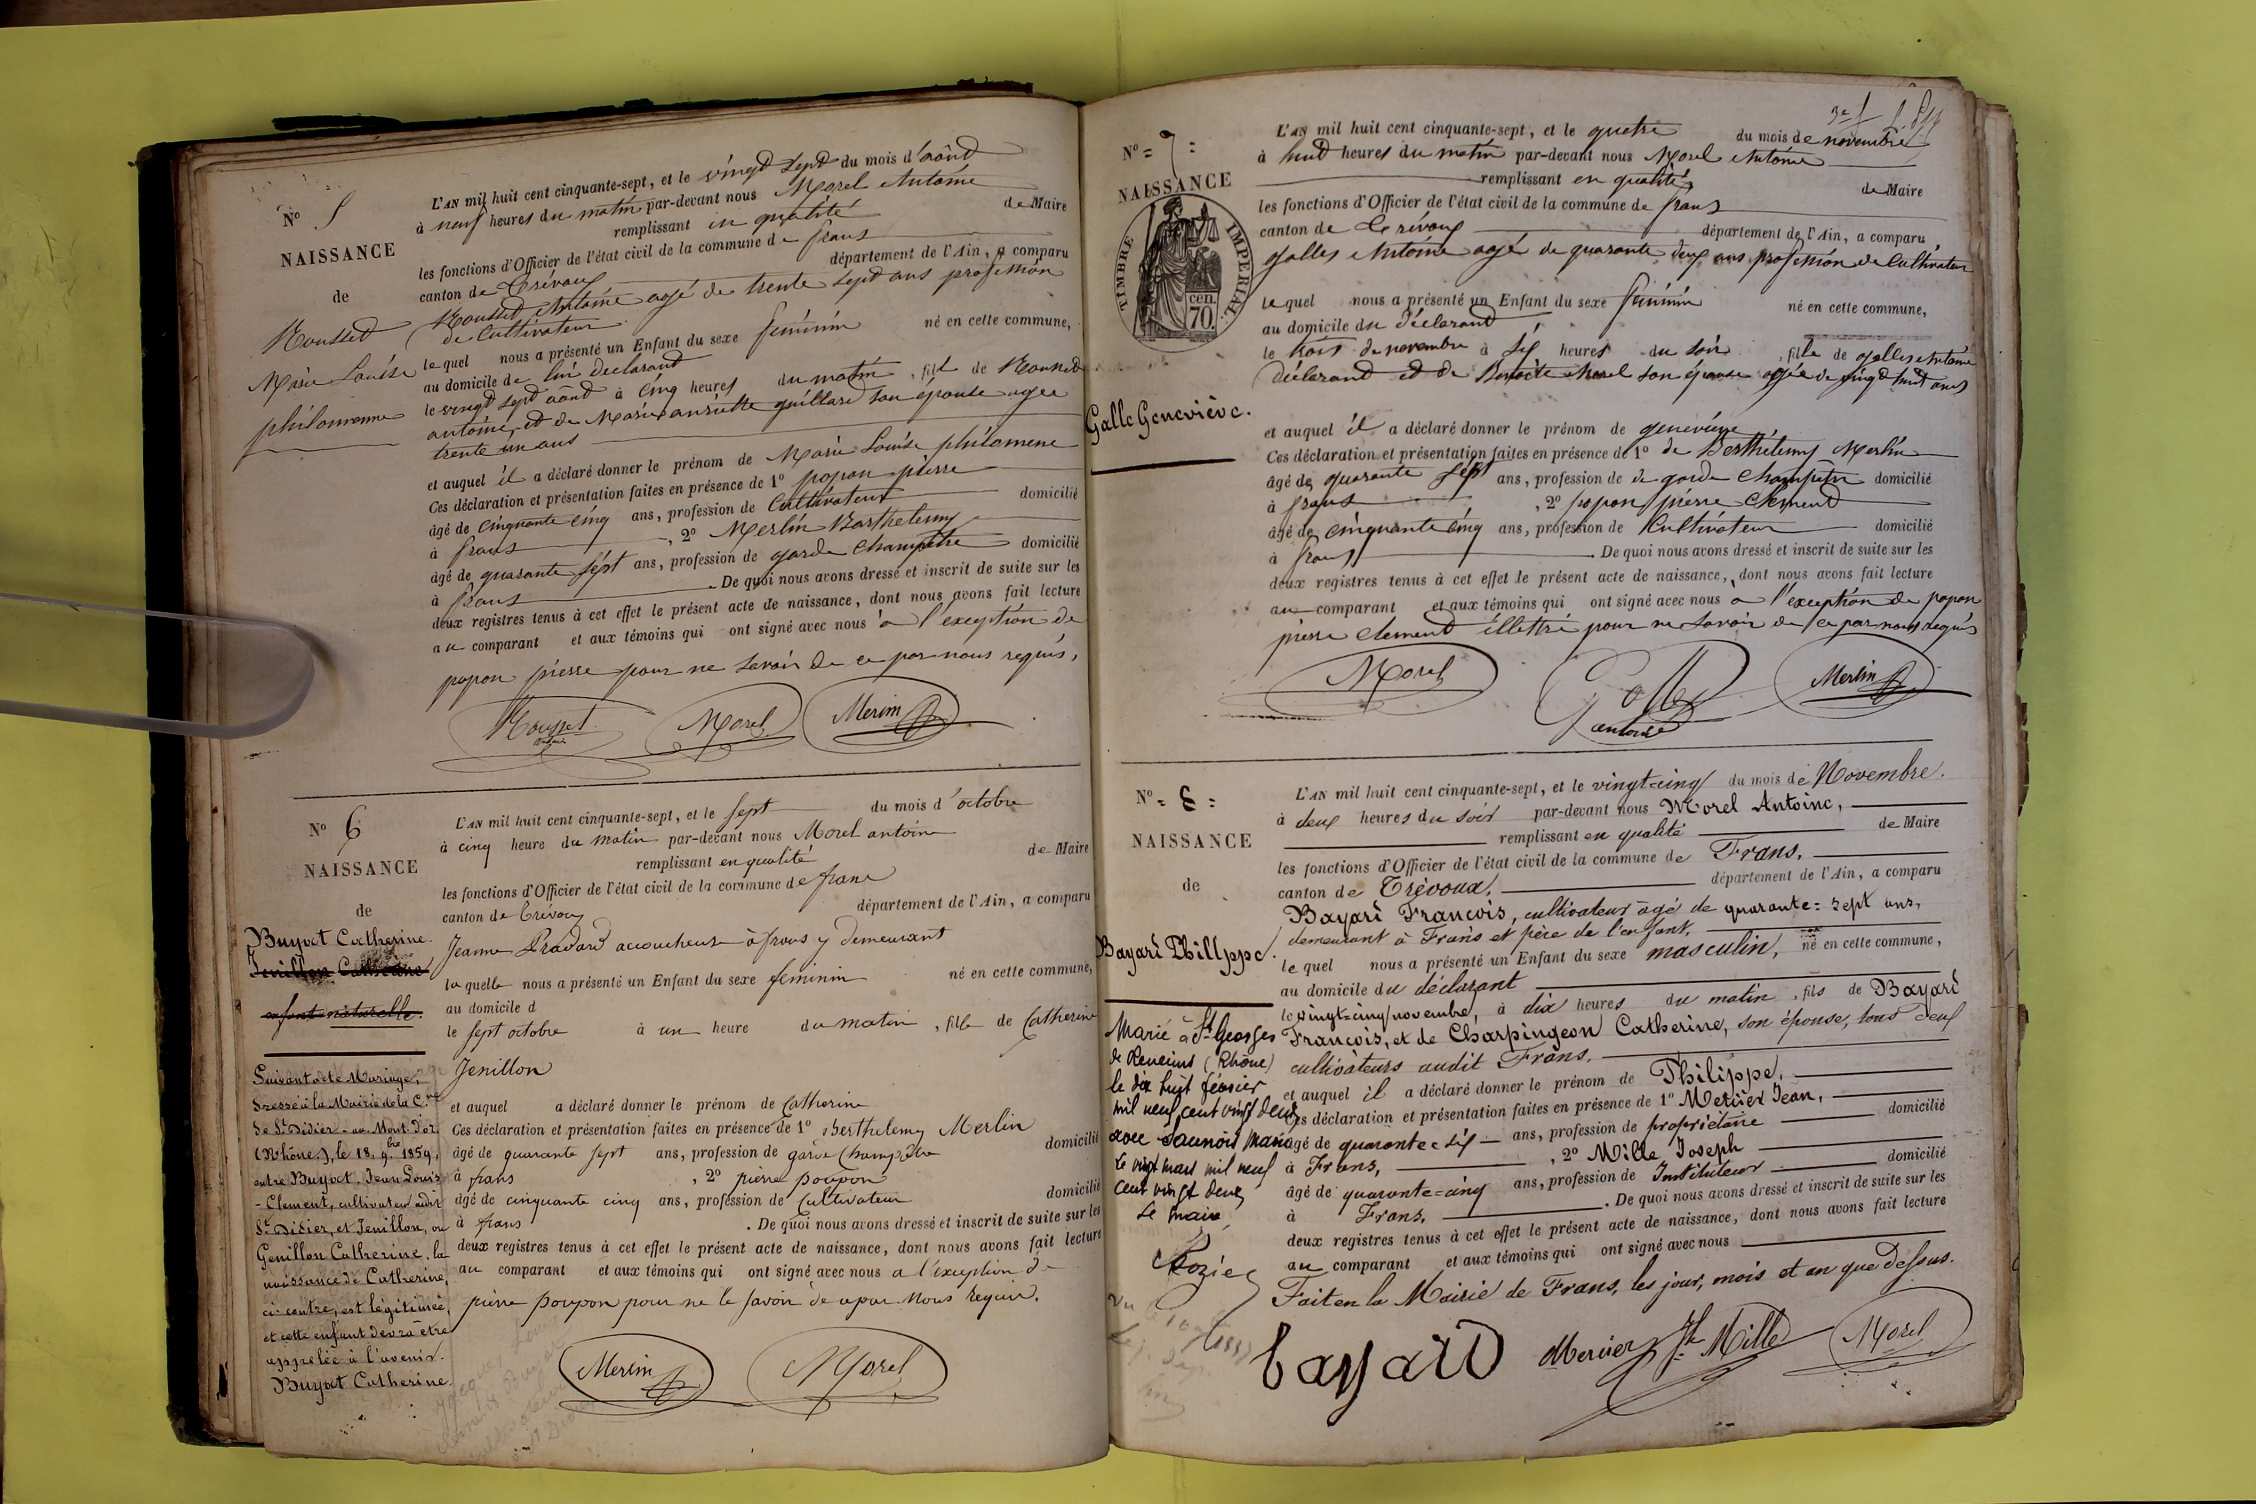 N° 5
NAISSANCE
de
Rousset
Marie Louise
philomenne
L'AN mil huit cent cinquante-sept, et le vingt sept du mois d'août
à neuf heures du matin par-devant nous Morel Antoine
remplissant en qualité de Maire
les fonctions d'Officier de l'état civil de la commune de frans
canton de Trévoux département de l'Ain, a comparu
Rousset Antoine agé de trente sept ans profession
de Cultivateur
le quel nous a présenté un Enfant du sexe féminin né en cette commune,
au domicile de lui déclarant
le vingt sept août à cinq heures du matin, fille de Rousset
antoine et de Marie anriette guillard son épouse agée
trente un ans
et auquel il a déclaré donner le prénom de Marie Louise philomene
Ces déclaration et présentation faites en présence de 1° popon pierre
âgé de cinquante cinq ans, profession de Cultivateur domicilié
à frans, 2° Merlin Barthelemy
âgé de quarante sept ans, profession de garde champetre domicilié
à frans. De quoi nous avons dressé et inscrit de suite sur les
deux registres tenus à cet effet le présent acte de naissance, dont nous avons fait lecture
au comparant et aux témoins qui ont signé avec nous à l'exception de
popon pierre pour ne savoir de ce par nous requis,
Rousset Morel Merlin
N° 6
NAISSANCE
de
Buyat Catherine.
Jenillon Catherine
enfant naturelle.
Suivant acte de Mariage,
dressé à la Mairie de la C.ne
de St Didier-au-Mont-d'or
(Rhône), le 18 9bre 1859,
entre Buyat, Jean Louis
-Clement, cultivateur audit
St Didier, et Jenillon, ou
Genillon Catherine, la
naissance de Catherine,
ci-contre, est légitimée,
et cette enfant devra être
appelée à l'avenir.
Buyat Catherine.
L'AN mil huit cent cinquante-sept, et le sept du mois d'octobre
à cinq heure du matin par-devant nous Morel antoine
remplissant en qualité de Maire
les fonctions d'Officier de l'état civil de la commune de frans
canton de Trévoux département de l'Ain, a comparu
Jeanne Pradard accoucheuse à frans y demeurant
la quelle nous a présenté un Enfant du sexe feminin né en cette commune,
au domicile d
le sept octobre à un heure du matin, fille de Catherine
Jenillon
et auquel a déclaré donner le prénom de Catherine
Ces déclaration et présentation faites en présence de 1° Berthelemy Merlin
âgé de quarante sept ans, profession de garde Champêtre domicilié
à frans, 2° pierre poupon
âgé de cinquante cinq ans, profession de Cultivateur domicilié
à frans. De quoi nous avons dressé et inscrit de suite sur les
deux registres tenus à cet effet le présent acte de naissance, dont nous avons fait lecture
au comparant et aux témoins qui ont signé avec nous a l'éxception de
pierre poupon pour ne le savoir de ce par Nous requir.
Merlin Morel
N° = 7 =
NAISSANCE
TIMBRE IMPÉRIAL
70 cen.
Galle Geneviève.
L'AN mil huit cent cinquante-sept, et le quatre du mois de novembre
à huit heures du matin par-devant nous Morel Antoine
remplissant en qualité de Maire
les fonctions d'Officier de l'état civil de la commune de frans
canton de Trévoux département de l'Ain, a comparu
galles Antoine agé de quarante deux ans profession de Cultivateur
le quel nous a présenté un Enfant du sexe féminin né en cette commune,
au domicile du déclarant
le trois de novembre à six heures du soir, fille de galles Antoine
déclarant et de Benoite Morel son épouse agée de vingt huit ans
et auquel il a déclaré donner le prénom de genevieve
Ces déclaration et présentation faites en présence de 1° de Berthélemy Merlin
âgé de quarante sept ans, profession de de garde champetre domicilié
à frans, 2° popon pierre Clement
âgé de cinquante cinq ans, profession de Cultivateur domicilié
à frans. De quoi nous avons dressé et inscrit de suite sur les
deux registres tenus à cet effet le présent acte de naissance, dont nous avons fait lecture
au comparant et aux témoins qui ont signé avec nous a l'exception de popon
pierre Clement illettré pour ne savoir de ce par nous requis
Morel Galle antoine Merlin
N° = 8 =
NAISSANCE
de
Bayard Philippe.
Marié à St Georges
de Reneins (Rhône)
le dix huit février
mil neuf cent vingt deux
avec Saunois Maria
Le vingt mars mil neuf
cent vingt deux
Le maire
L'AN mil huit cent cinquante-sept, et le vingt=cinq du mois de Novembre.
à deux heures du soir par-devant nous Morel Antoine,
remplissant en qualité de Maire
les fonctions d'Officier de l'état civil de la commune de Frans,
canton de Trévoux, département de l'Ain, a comparu
Bayard François, cultivateur âgé de quarante=sept ans,
demeurant à Frans et père de l'enfant,
le quel nous a présenté un Enfant du sexe masculin, né en cette commune,
au domicile du déclarant
le vingt=cinq novembre, à dix heures du matin, fils de Bayard
François, et de Charpingeon Catherine, son épouse, tous deux
cultivateurs audit Frans,
et auquel il a déclaré donner le prénom de Philippe,
Ces déclaration et présentation faites en présence de 1° Mercier Jean,
âgé de quarante=six ans, profession de propriétaire domicilié
à Frans, 2° Mille Joseph
âgé de quarante=cinq ans, profession de Instituteur domicilié
à Frans. De quoi nous avons dressé et inscrit de suite sur les
deux registres tenus à cet effet le présent acte de naissance, dont nous avons fait lecture
au comparant et aux témoins qui ont signé avec nous
Fait en la Mairie de Frans, les jour, mois et an que dessus.
bayard Mercier Jh Mille Morel